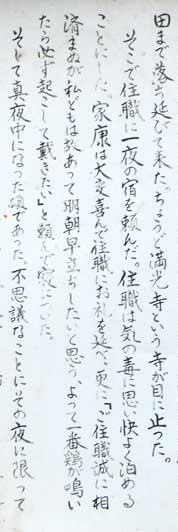 田まで落ち延びて来た。ちょうど満光寺という寺が目に止った。
そこで住職に一夜の宿を頼んだ。住職は気の毒に思い快よく泊める
ことにした。家康は大変喜んで住職にお礼を延べ、更に、「ご住職誠に相
済まぬが私どもは故あって明朝早立ちしたいと思う。よって一番鶏が鳴い
たら必ず起こして戴きたい」と頼んで寝についた。
そして真夜中になった頃であった。不思議なことにその夜に限って